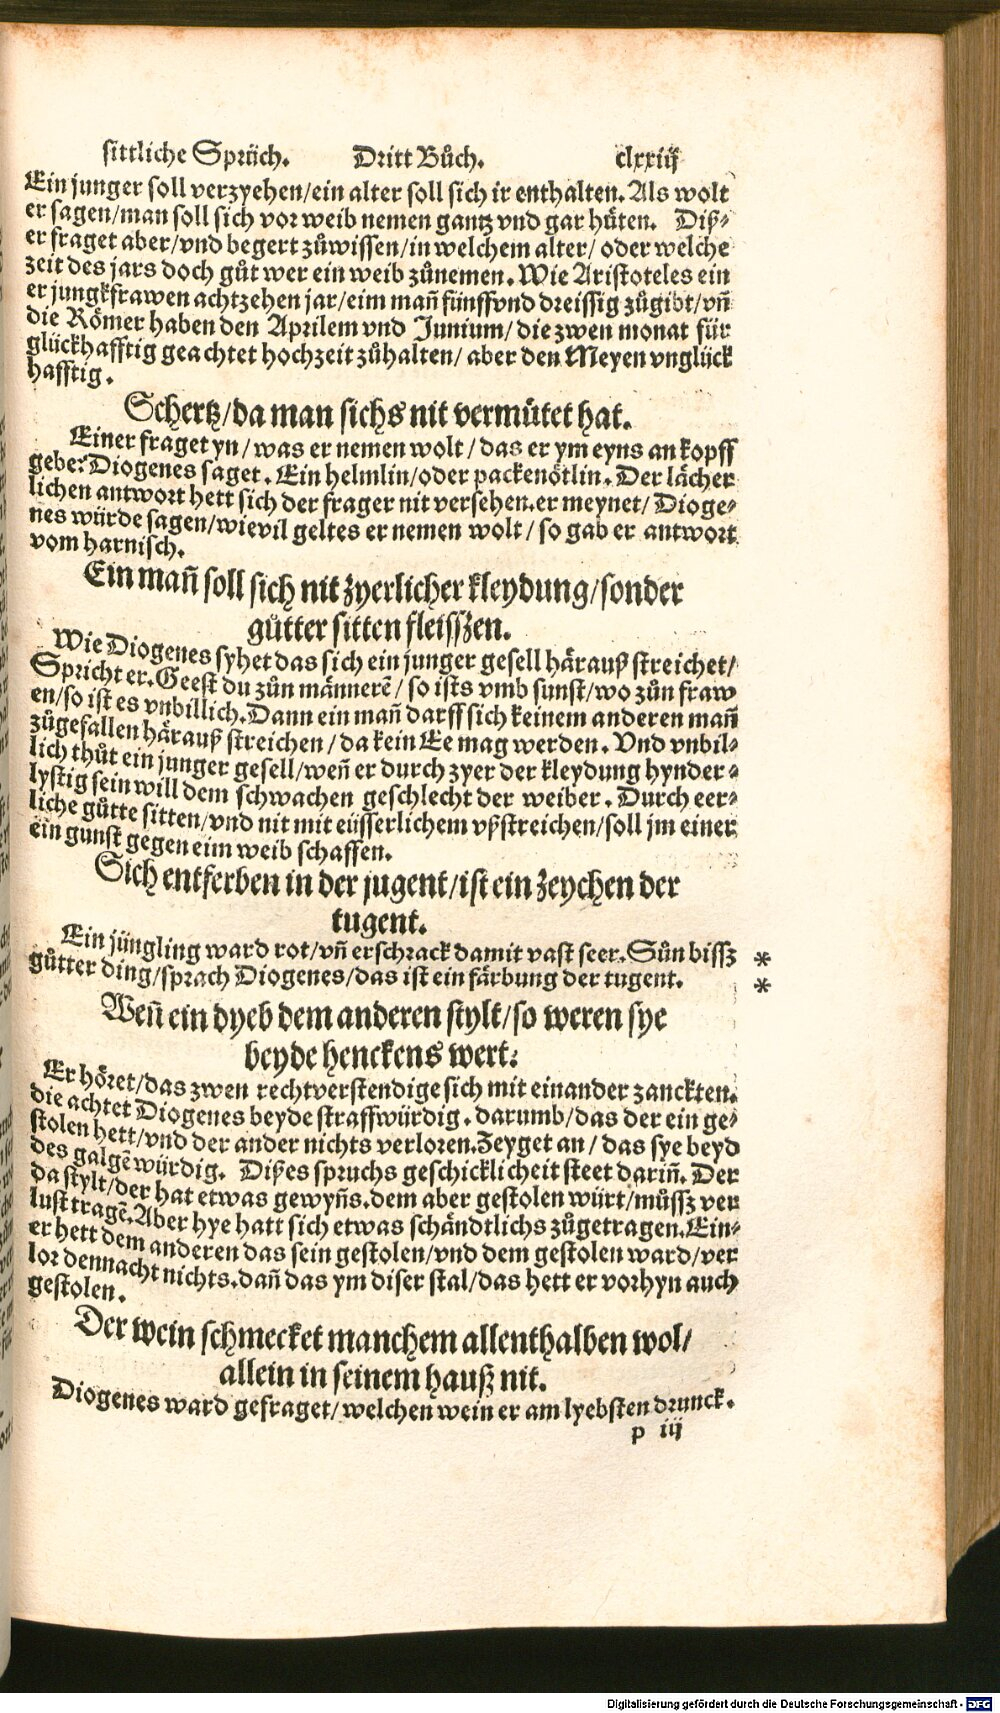 sittliche Sprüch. Dritt Bůch. clxxiij
Ein junger soll verzyehen/ein alter soll sich ir enthalten. Als wolt
er sagen/man soll sich vor weib nemen gantz vnd gar hüten. Diß⸗
er fraget aber/vnd begert zůwissen/in welchem alter/ oder welche
zeit des jars doch gůt wer ein weib zůnemen. Wie Aristoteles ein
er jungkfrawen achtzehen jar/eim mañ fünffvnd dreissig zůgibt/vñ
die Römer haben den Aprilem vnd Junium/ die zwen monat für
glückhafftig geachtet hochzeit zůhalten/ aber den Meyen vnglück
hafftig.
Schertz/da man sichs nit vermůtet hat.
Einer fraget yn/ was er nemen wolt/das er ym eyns an kopff
gebe: Diogenes saget. Ein helmlin/oder packenötlin. Der lächer
lichen antwort hett sich der frager nit versehen.er meynet/ Dioge⸗
nes würde sagen/wievil geltes er nemen wolt/ so gab er antwort
vom harnisch.
Ein mañ soll sich nit zyerlicher kleydung/sonder
gůtter sitten fleissen.
Wie Diogenes syhet das sich ein junger gesell härauß streichet/
Spricht er. Geest du zůn männerē/ so ists vmb sunst/wo zůn fraw
en/so ist es vnbillich. Dann ein mañ darff sich keinem anderen mañ
zůgefallen härauß streichen/da kein Ee mag werden. Vnd vnbil⸗
lich thůt ein junger gesell/weñ er durch zyer der kleydung hynder⸗
lystig sein will dem schwachen geschlecht der weiber. Durch eer⸗
liche gůtte sitten/vnd nit mit eüsserlichem vßstreichen/soll jm einer
ein gunst gegen eim weib schaffen.
Sich entferben in der jugent/ist ein zeychen der
tugent.
Ein jüngling ward rot/vñ erschrack damit vast seer. Sůn bissz *
gůtter ding/sprach Diogenes/das ist ein färbung der tugent. *
Weñ ein dyeb dem anderen stylt/so weren sye
beyde henckens wert:
Er höret/das zwen rechtverstendige sich mit einander zanckten.
die achtet Diogenes beyde straffwürdig. darumb/das der ein ge⸗
stolen hett/vnd der ander nichts verloren.Zeyget an/ das sye beyd
des galgē würdig. Dißes spruchs geschicklicheit steet dariñ. Der
da stylt/der hat etwas gewyñs.dem aber gestolen würt/můssz ver
lust tragē. Aber hye hatt sich etwas schändtlichs zůgetragen.Ein⸗
er hett dem anderen das sein gestolen/vnd dem gestolen ward/ver
lor dennacht nichts.dañ das ym diser stal/das hett er vorhyn auch
gestolen.
Der wein schmecket manchem allenthalben wol/
allein in seinem hauß nit.
Diogenes ward gefraget/welchen wein er am lyebsten drunck.
p iij
Digitalisierung gefördert durch die Deutsche Forschungsgemeinschaft - DFG